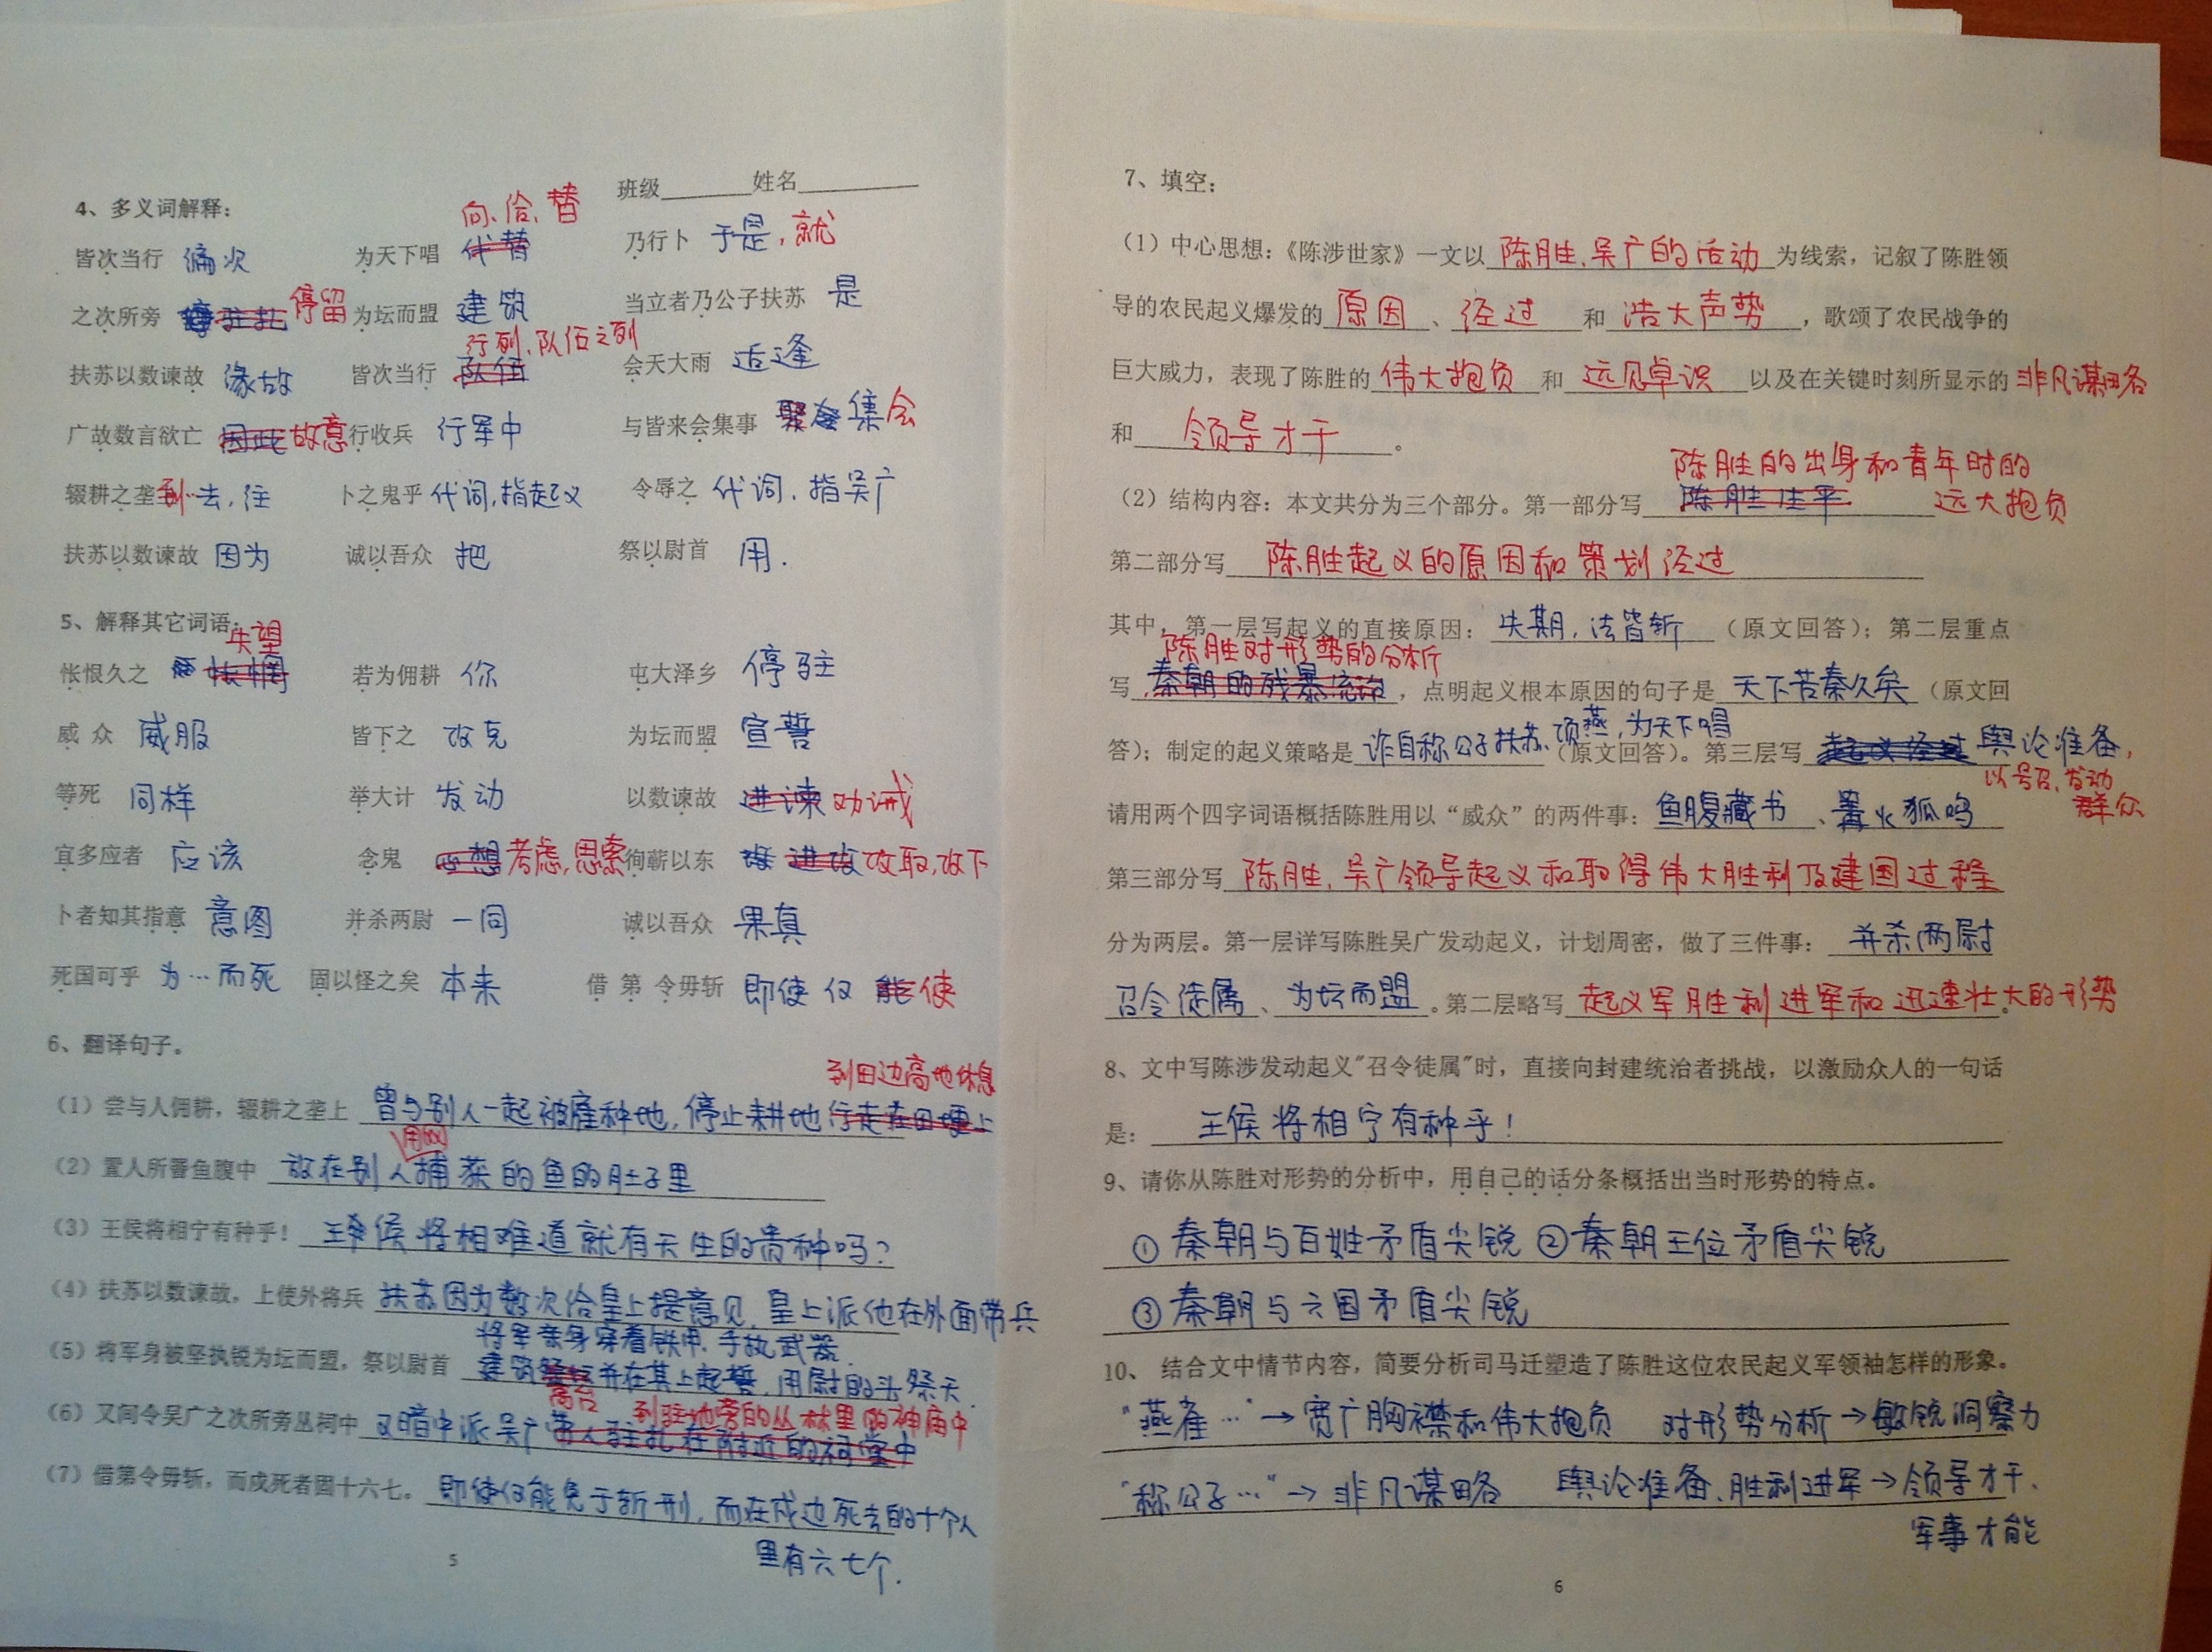 班级 姓名
4、多义词解释：
向、给、替
皆次当行 编次 为天下唱 代替 乃行卜 于是，就
之次所旁 停留 为坛而盟 建筑 当立者乃公子扶苏 是
行列、队伍之列
扶苏以数谏故 缘故 皆次当行 队伍 会天大雨 适逢
广故数言欲亡 因此 故意 行收兵 行军中 与皆来会集事 聚会 集会
辍耕之垄 到…去，往 卜之鬼乎 代词，指起义 令辱之 代词，指吴广
扶苏以数谏故 因为 诚以吾众 把 祭以尉首 用.
5、解释其它词语：
失望
怅恨久之 惆怅 若为佣耕 你 屯大泽乡 停驻
威众 威服 皆下之 攻克 为坛而盟 宣誓
等死 同样 举大计 发动 以数谏故 进谏 劝诫
宜多应者 应该 念鬼 想 考虑，思索 徇蕲以东 进攻 攻取，攻下
卜者知其指意 意图 并杀两尉 一同 诚以吾众 果真
死国可乎 为…而死 固以怪之矣 本来 借第令毋斩 即使 仅 能 使
6、翻译句子。
到田边高地休息
（1）尝与人佣耕，辍耕之垄上 曾与别人一起被雇种地，停止耕地行走在田埂上
用网
（2）置人所罾鱼腹中 放在别人捕获的鱼的肚子里
（3）王侯将相宁有种乎！ 王侯将相难道就有天生的贵种吗？
（4）扶苏以数谏故，上使外将兵 扶苏因为数次给皇上提意见，皇上派他在外面带兵
将军亲身穿着铁甲，手执武器.
（5）将军身被坚执锐为坛而盟，祭以尉首 建筑祭坛并在其上起誓，用尉的头祭天.
高台 到驻地旁的丛林里的神庙中
（6）又间令吴广之次所旁丛祠中 又暗中派吴广带人驻扎在附近的祠堂中
（7）借第令毋斩，而戍死者固十六七。 即使仅能免于斩刑，而在戍边死去的十个人
里有六七个.
5
7、填空：
（1）中心思想：《陈涉世家》一文以 陈胜、吴广的活动 为线索，记叙了陈胜领
导的农民起义爆发的 原因 、 经过 和 浩大声势 ，歌颂了农民战争的
巨大威力，表现了陈胜的 伟大抱负 和 远见卓识 以及在关键时刻所显示的 非凡谋略
和 领导才干 。
陈胜的出身和青年时的
（2）结构内容：本文共分为三个部分。第一部分写 陈胜生平 远大抱负
第二部分写 陈胜起义的原因和策划经过
其中，第一层写起义的直接原因： 失期，法皆斩 （原文回答）；第二层重点
陈胜对形势的分析
写 秦朝的残暴统治 ，点明起义根本原因的句子是 天下苦秦久矣 （原文回
答）；制定的起义策略是 诈自称公子扶苏、项燕，为天下唱 （原文回答）。第三层写 起义经过 舆论准备，
以号召、发动
请用两个四字词语概括陈胜用以“威众”的两件事： 鱼腹藏书 、 篝火狐鸣 群众
第三部分写 陈胜、吴广领导起义和取得伟大胜利及建国过程
分为两层。第一层详写陈胜吴广发动起义，计划周密，做了三件事： 并杀两尉
召令徒属 、 为坛而盟 。第二层略写 起义军胜利进军和迅速壮大的形势 。
8、文中写陈涉发动起义"召令徒属"时，直接向封建统治者挑战，以激励众人的一句话
是： 王侯将相宁有种乎！
9、请你从陈胜对形势的分析中，用自己的话分条概括出当时形势的特点。
①秦朝与百姓矛盾尖锐 ②秦朝王位矛盾尖锐
③秦朝与六国矛盾尖锐
10、 结合文中情节内容，简要分析司马迁塑造了陈胜这位农民起义军领袖怎样的形象。
“燕雀…”→宽广胸襟和伟大抱负 对形势分析→敏锐洞察力
“称公子…”→非凡谋略 舆论准备、胜利进军→领导才干、
军事才能
6